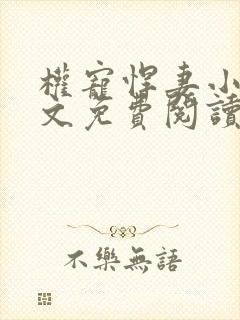 權寵悍妻小
文免費閱讀
不樂無語